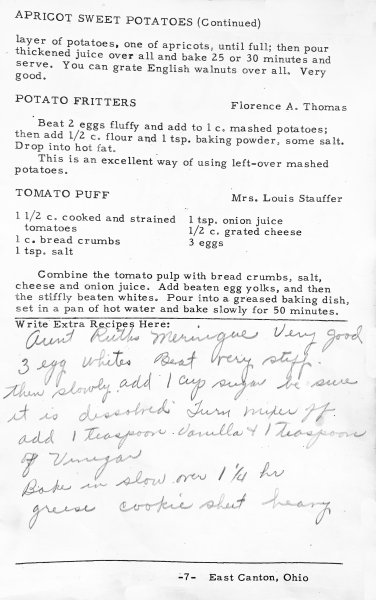 APRICOT SWEET POTATOES (Continued)
layer of potatoes, one of apricots, until full; then pour
thickened juice over all and bake 25 or 30 minutes and
serve. You can grate English walnuts over all. Very
good.
POTATO FRITTERS Florence A. Thomas
Beat 2 eggs fluffy and add to 1 c. mashed potatoes;
then add 1/2 c. flour and 1 tsp. baking powder, some salt.
Drop into hot fat.
This is an excellent way of using left-over mashed
potatoes.
TOMATO PUFF Mrs. Louis Stauffer
1 1/2 c. cooked and strained
tomatoes
1 c. bread crumbs
1 tsp. salt
1 tsp. onion juice
1/2 c. grated cheese
3 eggs
Combine the tomato pulp with bread crumbs, salt,
cheese and onion juice. Add beaten egg yolks, and then
the stiffly beaten whites. Pour into a greased baking dish,
set in a pan of hot water and bake slowly for 50 minutes.
Write Extra Recipes Here:
Aunt Ruths Meringue Very good
3 egg whites Beat very stiff.
then slowly add 1 cup sugar be sure
it is dissolved Turn mixer off
add 1 teaspoon Vanilla & 1 teaspoon
of Vinegar
Bake in slow over 1 1/4 hr
grease cookie sheet heavy
-7- East Canton, Ohio